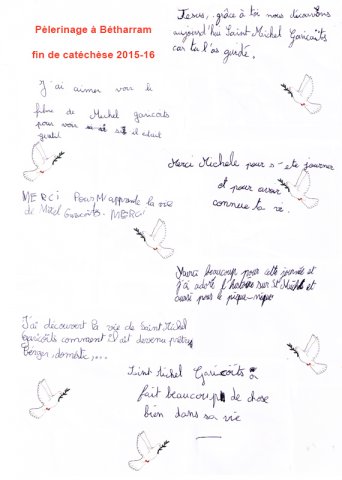 Pèlerinage à Bétharram
fin de catéchèse 2015-16
Jesus, grâce à toi nous découvrons
aujourd'hui Saint Michel Garicoïts
car tu l'as guidé.
J'ai aimer voir le
filme de Michel garicoits
pour voir si il était
gentil
Merci Michele pour s-ete journer
et pour avoir
connue ta vie.
MERCI Pour M'apprendre la vie
de Mitel Garicoits. MERCI
Merci beaucoup pour cette journée et
j'ai adoré l'histoire sur St Michel et
aussi pour le pique-nique
J'ai découvert la vie de Saint Michel
Garicoïts comment il ait devenu prêtre,
berger, domestic,...
Saint Michel Garicoïts a
fait beaucoup de chose
bien dans sa vie